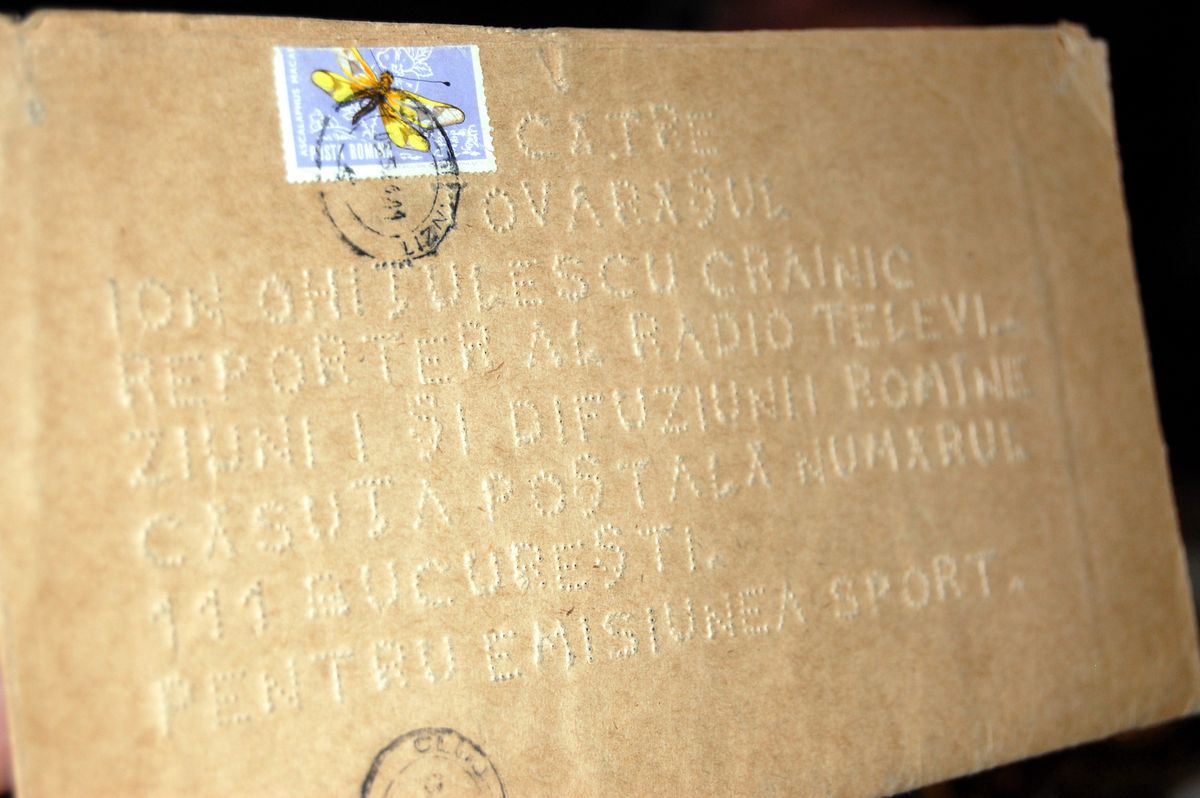 ASCALAPHUS MACAR
POSTA ROMINA
CĂTRE
TOVARĂŞUL
ION GHIŢULESCU CRAINIC
REPORTER AL RADIO TELEVI-
ZIUNII ŞI DIFUZIUNII ROMÎNE
CĂSUŢA POŞTALĂ NUMĂRUL
111 BUCUREŞTI.
PENTRU EMISIUNEA SPORT.
CLUJ